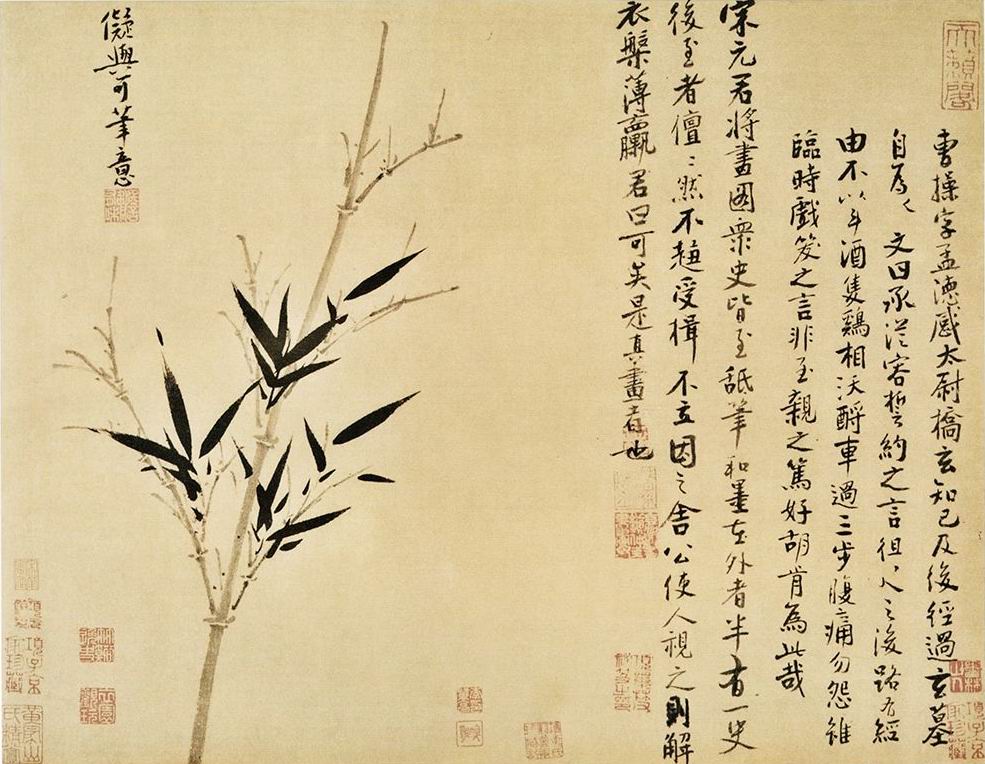 天籟閣
曹操字孟德感太尉橋玄知己及後經過玄墓
自為文曰承從容誓約之言徂之後路有經
由不以斗酒隻鷄相沃酹車過三步腹痛勿怨雖
臨時戲笑之言非至親之篤好胡肯為此哉
宋元君將畫圖衆史皆至舐筆和墨在外者半有一史
後至者儃〻然不趨受楫不立因之舍公使人視之則解
衣槃薄臝君曰可矣是真畫者也
儗與可筆意
項子京家珍藏